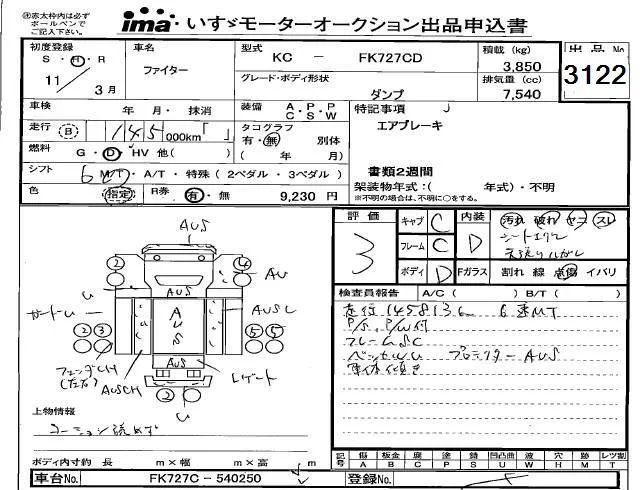 ㊟赤太枠内は必ず
ボールペンで
ご記入下さい。
ima いすゞモーターオークション出品申込書
初度登録 S・H・R 11/3月
車名 ファイター
型式 KC - FK727CD
積載(kg) 3,850
出品No 3122
グレード・ボディ形状 ダンプ
排気量(cc) 7,540
車検 年 月・ 抹消
装備 A・P・P C・S・W
特記事項
走行 B 145,000km「 」
タコグラフ 有・無 別体
( 年 月)
エアブレーキ
燃料 G・D・HV 他( )
シフト 6 M/T・A/T・特殊(2ペダル・3ペダル)
書類2週間
架装物年式:( 年式)・不明
※不明の場合は、不明に○をする。
色 指定 R券 有・無 9,230円
評価 3
キャブ C
フレーム C
ボディ D
内装 D
汚れ 破れ ヤニ スレ
シートエクレ
Fガラス 割れ 線 点傷 イバリ
AUS
2 4 AU
u AUS
ガードu AUS AUSC
2 3 5 5
フェンダCH
(左右)
AUSCH AUS Lゲート
2 u
検査員報告 A/C( ) B/T( )
走行145813km 6速MT
P/S P/W付
フレームSC
ベッセルu プロテクターAUS
車体傾き
上物情報
ボディ内寸約 長 m×幅 m×高 m
記号 傷A 板金B 腐C 塗P 錆S 凹凸曲U 波W 穴H 跡M レツ割T
車台No. FK727C-540250
登録No.